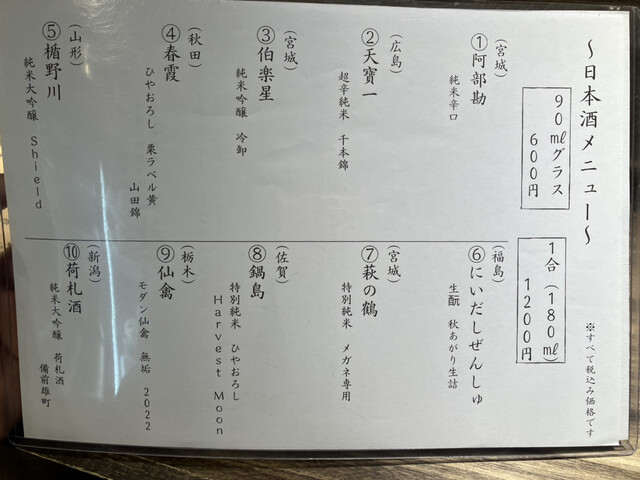 ～日本酒メニュー～
90mlグラス
600円
1合(180ml)
1200円
※すべて税込み価格です
(宮城)
①阿部勘
純米辛口
(広島)
②天寶一
超辛純米 千本錦
(宮城)
③伯楽星
純米吟醸 冷卸
(秋田)
④春霞
ひやおろし 栗ラベル黄
山田錦
(山形)
⑤楯野川
純米大吟醸 Shield
(福島)
⑥にいだしぜんしゅ
生酛 秋あがり生詰
(宮城)
⑦萩の鶴
特別純米 メガネ専用
(佐賀)
⑧鍋島
特別純米 ひやおろし
Harvest Moon
(栃木)
⑨仙禽
モダン仙禽 無垢 2022
(新潟)
⑩荷札酒
純米大吟醸 荷札酒
備前雄町